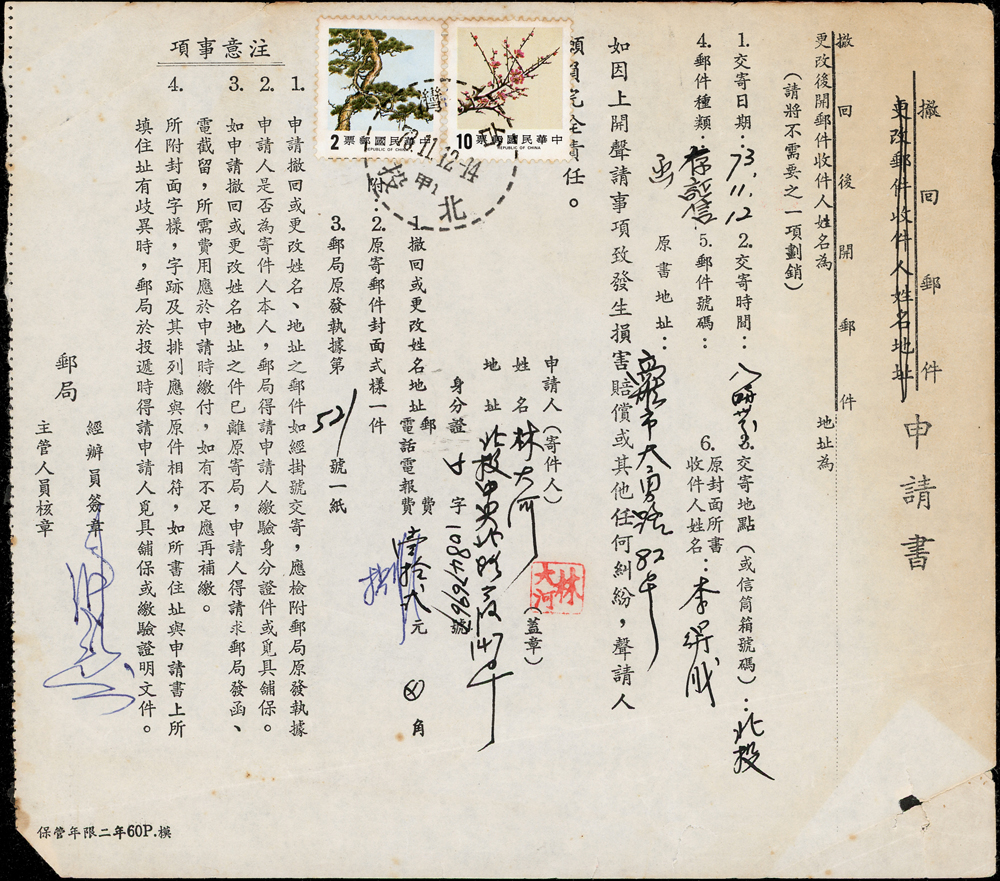 撤回郵件
更改郵件收件人姓名地址
申請書
撤回後開郵件
更改後開郵件收件人姓名為
地址為
(請將不需要之一項劃銷)
1.交寄日期:73.11.12 2.交寄時間:八時 3.交寄地點(或信筒箱號碼):北投
4.郵件種類: 5.郵件號碼: 6.原封面所書收件人姓名:李
原書地址:高雄市大勇路82号
如因上開聲請事項致發生損害賠償或其他任何糾紛,聲請人
願負完全責任。
申請人(寄件人)
姓名 林大河 (蓋章)
林大河
地址 北投中央北路 段147号
身分證 字 號
附:
1.撤回或更改姓名地址郵費電話電報費 壹拾 元 角
2.原寄郵件封面式樣一件
3.郵局原發執據第 521 號一紙
中華民國郵票
10
REPUBLIC OF CHINA
中華民國郵票
2
REPUBLIC OF CHINA
台灣
73.11.12.-14
甲1
北投
注意事項
1.申請撤回或更改姓名、地址之郵件如經掛號交寄,應檢附郵局原發執據
2.申請人是否為寄件人本人,郵局得請申請人繳驗身分證件或覓具舖保。
3.如申請撤回或更改姓名地址之件已離原寄局,申請人得請求郵局發函、
電截留,所需費用應於申請時繳付,如有不足應再補繳。
4.所附封面字樣,字跡及其排列應與原件相符,如所書住址與申請書上所
填住址有歧異時,郵局於投遞時得請申請人覓具舖保或繳驗證明文件。
郵局
經辦員簽章
主管人員核章
保管年限二年60P.模